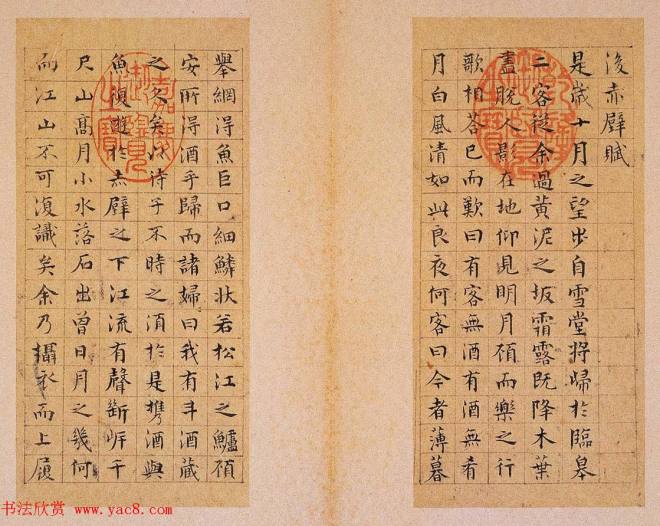 後赤壁賦
是歲十月之望步自雪堂將歸於臨皋
二客從余過黃泥之坂霜露既降木葉
盡脫人影在地仰見明月顧而樂之行
歌相答已而歎曰有客無酒有酒無肴
月白風清如此良夜何客曰今者薄暮
舉網得魚巨口細鱗狀若松江之鱸顧
安所得酒乎歸而諸婦曰我有斗酒藏
之久矣以待子不時之須於是攜酒與
魚復遊於赤壁之下江流有聲斷岸千
尺山高月小水落石出曾日月之幾何
而江山不可復識矣余乃攝衣而上履
嘉慶御覽之寶
书法欣赏 www.yac8.com